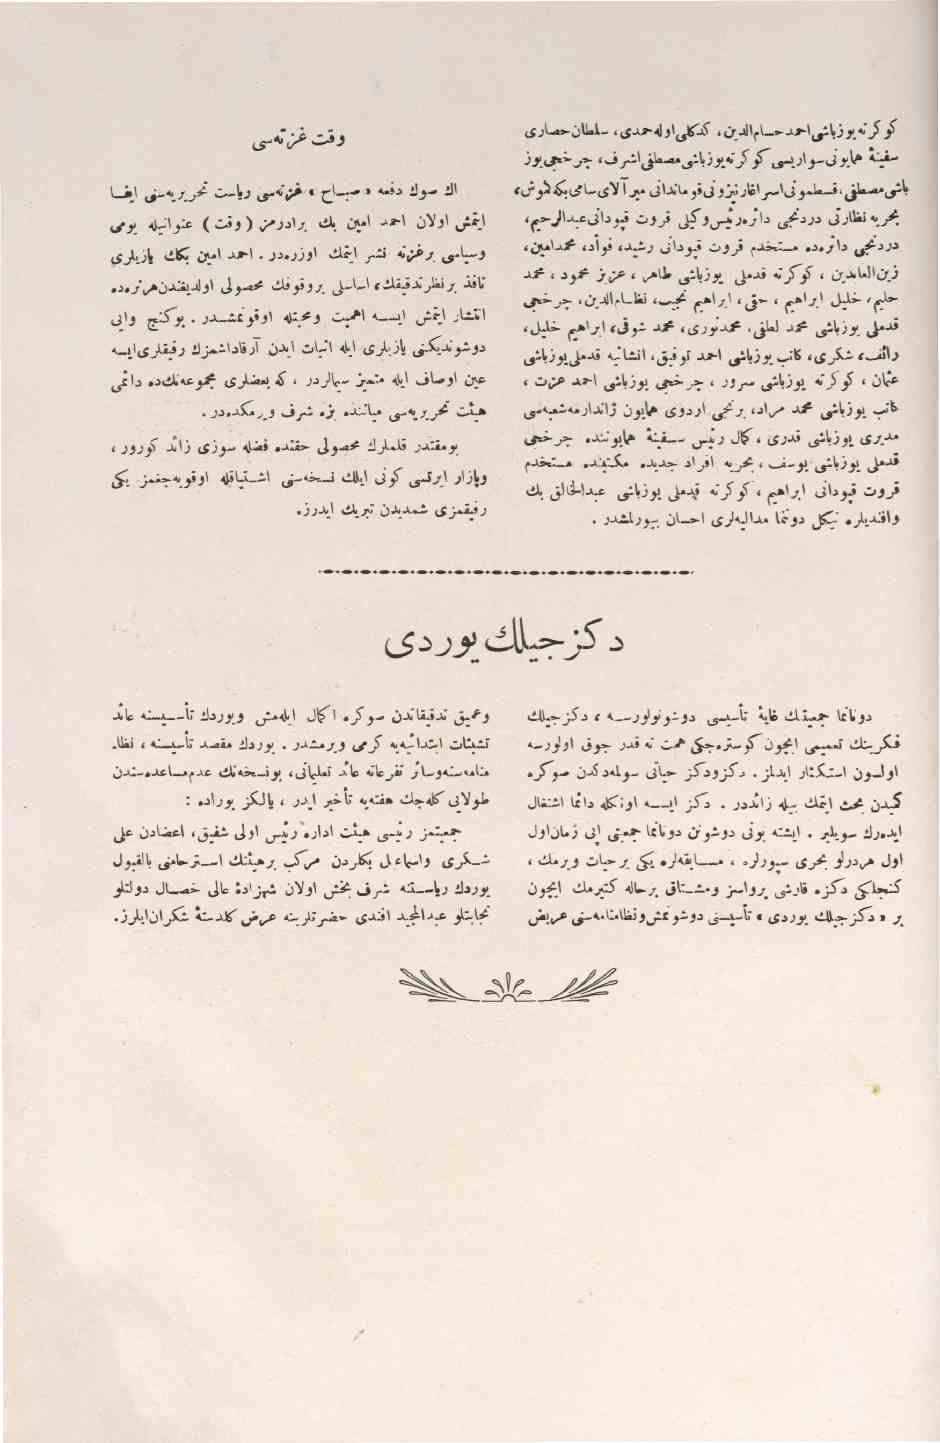 كوكرته یوزباشی احمد حسام الدین، كدكلی اوله حمدی، سلطان حصاری
سفینهٔ همایونی سواریسی كوكرته یوزباشی مصطفی اشرف، چرخجی یوز
باشی مصطفی، قسطمونی اسرا غارنیزونی قوماندانی میر آلای سامی بكه
بحریه نظارتی دردنجی دائره رئیس وكیلی قروت قپودانی عبدالرحیم،
دردنجی دائره ده مستخدم قروت قپودانی رشید، فوأد، محمد امین،
زین العابدین، كوكرته قدملی یوزباشی طاهر، عزیز محمود، محمد
حلیم، خلیل ابراهیم، حقی، ابراهیم نجیب، نظام الدین، چرخجی
قدملی یوزباشی محمد لطفی، محمد نوری، محمد شوقی، ابراهیم خلیل،
رائف، شكری، كاتب یوزباشی احمد توفیق، انشائیه قدملی یوزباشی
عثمان، كوكرته یوزباشی سرور، چرخجی یوزباشی احمد عزت،
كاتب یوزباشی محمد مراد، برنجی اردوی همایون ژاندارمه شعبه سی
مدیری یوزباشی قدری، كمال رئیس سفینهٔ همایوننده چرخجی
قدملی یوزباشی یوسف، بحریه افراد جدیده مكتبنده مستخدم
قروت قپودانی ابراهیم، كوكرته قدملی یوزباشی عبدالخالق بك
وافندیلره نیكل دوننما مدالیه لری احسان بیورلمشدر.
وقت غزته سی
اك صوك دفعه «صباح» غزته سی ریاست تحریریه سنی ایفا
ایتمش اولان احمد امین بك برادرمز (وقت) عنوانیله یومی
وسیاسی بر غزته نشر ایتمك اوزره در. احمد امین بكك یازیلری
نافذ بر نظر تدقیقك، اساسلی بر وقوفك محصولی اولدیغندن هر نره ده
انتشار ایتمش ایسه اهمیت ومحبتله اوقونمشدر. بوكنج وایی
دوشوندیكنی یازیلری ایله اثبات ایدن آرقاداشمزك رفیقلری ایسه
عین اوصاف ایله متمیز سیمالردر، كه بعضلری مجموعه نكده دائمی
هیئت تحریریه سی میاننده بزه شرف ویرمكده در.
بو مقتدر قلملرك محصولی حقنده فضله سوزی زائد كورور،
وپازار ایرتسی كونی ایلك نسخه سنی اشتیاقله اوقویه جغمز یكی
رفیقمزی شمدیدن تبریك ایدرز.
دكزجیلك یوردی
دونانما جمعیتنك غایهٔ تأسیسی دوشونولورسه، دكزجیلك
فكرینك تعمیمی ایچون كوستره جكی همت نه قدر چوق اولورسه
اولسون استكثار ایدلمز. دكزودكز حیاتی سویله مه دكدن صوكره
كمیدن بحث ایتمك بیله زائددر. دكز ایسه اونكله دائما اشتغال
ایده رك سویلیر. ایشته بونی دوشونن دونانما جمعیتی ایی زمان اول
اول هردرلو بحری سپورلره، مسابقه لره یكی بر حیات ویرمك،
كنجلكی دكزه قارشی پرواسز ومشتاق برحاله كتیرمك ایچون
بر «دكزجیلك یوردی» تأسیسنی دوشونمش ونظامنامه سنی عریض
وعمیق تدقیقاتدن صوكره اكمال ایله مش ویوردك تأسیسنه عائد
تشبثات ابتدائیه یه كرمی ویرمشدر. یوردك مقصد تأسیسنه، نظا-
منامه سنه وسائر تفرعاته عائد تعلیماتی، بو نسخه نك عدم مساعده سندن
طولایی كله جك هفته یه تأخیر ایدر، یالكز بوراده:
جمعیتمز رئیسی هیئت اداره رئیس اولی شفیق، اعضادن علی
شكری واسماعیل بكلردن مركب برهیئتك استرحامنی بالقبول
یوردك ریاستنه شرف بخش اولان شهزادهٔ عالی خصال دولتلو
نجابتلو عبدالمجید افندی حضرتلرینه عرض كلدستهٔ شكران ایلرز.